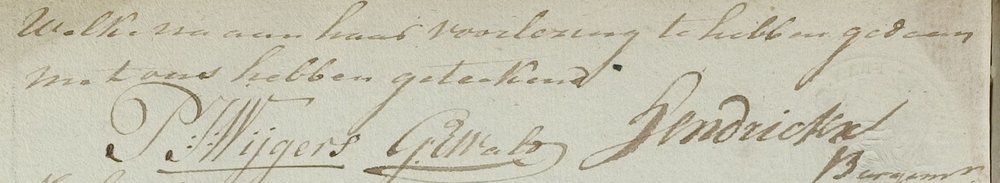 Welke na aan haar voorlezing te hebben gedaan
met ons hebben geteekend.
P. J. Wijgers G. Ewalt Hendrickx
Burgemr